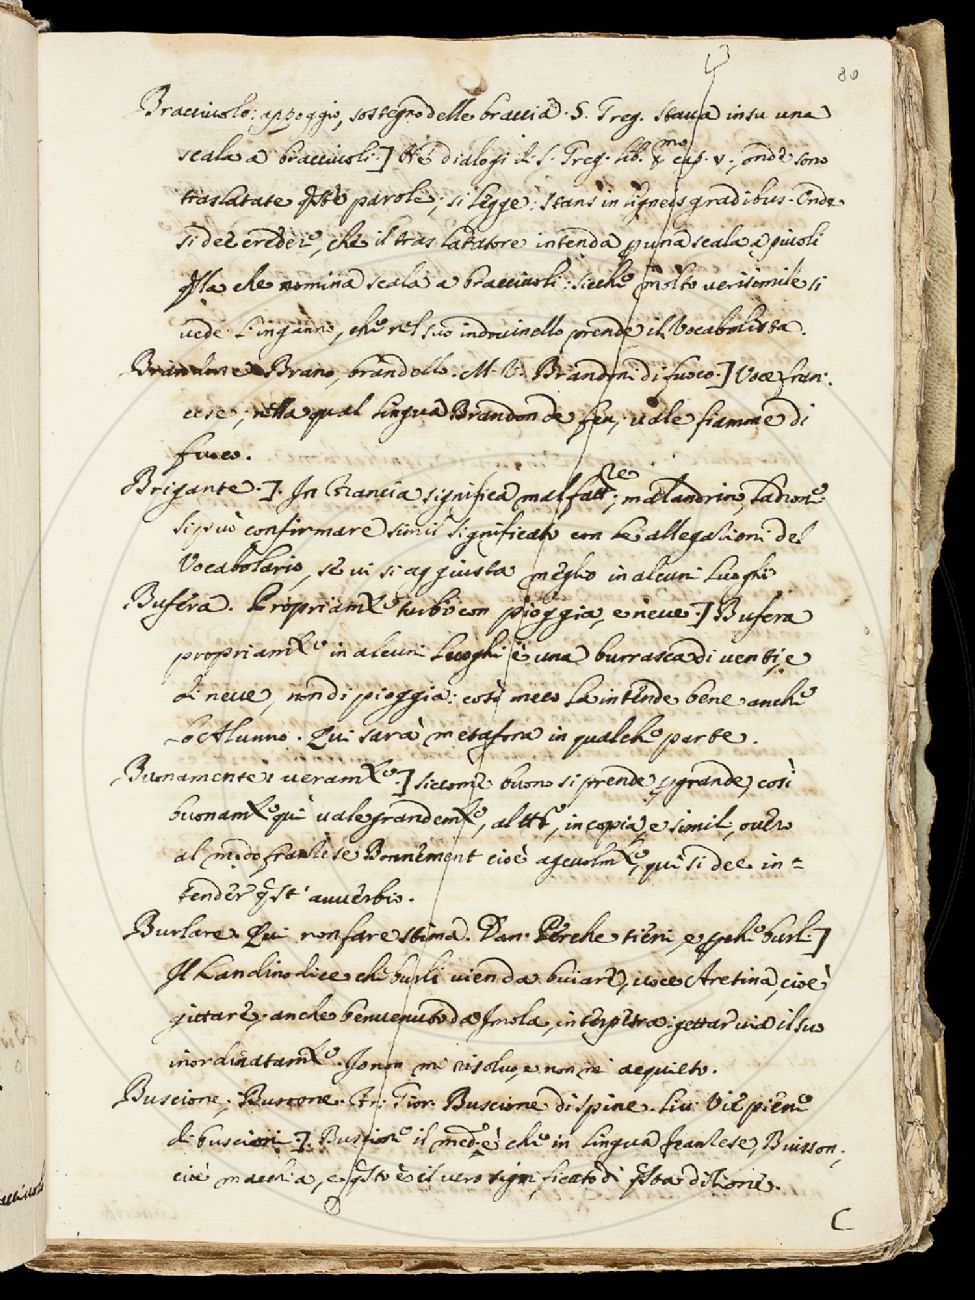 80
Bracciuolo: appoggio, sostegno delle braccia. S. Greg. stava in su una
scala a bracciuoli.] Ne' dialogi di S. Greg. lib. cap. v., onde sono
traslatate qste parole, si legge: stans in ligneis gradibus. Onde
si dee credere, che il traslatatore intenda p una scala a piuoli
qlla che nomina scala a bracciuoli: sicche molto verisimile si
vede l'inganno, che nel suo indovinello prende il Vocabolista.
Brano, brandello. M. V. Brandon di fuoco.] Voce fran:
cese, nella qual lingua Brandon de feu, vale fiamme di
fuoco.
Brigante.]. In Francia significa malfattre, malandrino, ladrone
si può confirmare simil significato con le allegazioni del
Vocabolario, se vi si aggiusta meglio in alcuni luoghi
Bufera. Propriamte turbo con pioggia, e neve.] Bufera
propriamte in alcuni luoghi è una burrasca di venti, e
di neve, non di pioggia: così meco la intende bene anche
lo Alunno. Qui sarà metafora in qualche parte.
Buonamente: veramte.] siccome buono si prende p grande, così
buonamte quì vale grandemte, altte, in copia, e simil, overo
al modo franzese Bonnement cioè agevolmte, quì si dee in=
tender qst' avverbio.
Burlare. Qui non far stima. Dan. Perche tieni, e pche burli]
Il Landino dice che burli vien da buiare, voce Aretina, cioè
gittare, anche benvenuto da Imola, interpetra: gettar via il suo
inordinatamte. Io non mi risolvo, e non m' acquieto.
Buscione, Buscone. Fr: Gior. Buscione di spine. Liv. Vie piene
di buscioni.]. Buscione il medo è che in lingua franzese, Buisson,
cioè macchia, e qsto è il vero significato di qsta dizione.
C